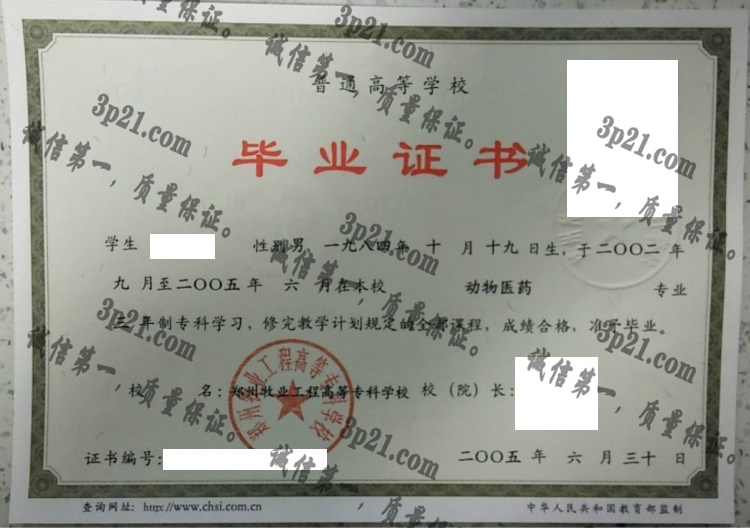 普通高等学校
毕业证书
学生 性别男，一九八四年 十 月 十九 日生，于二〇〇二 年
九 月至二〇〇五 年 六 月在本校 动物医药 专业
三 年制专科学习，修完教学计划规定的全部课程，成绩合格，准予毕业。
校 名：郑州牧业工程高等专科学校 校（院）长：
郑州牧业工程高等专科学校
证书编号： 二〇〇五 年 六 月 三十 日
查询网址：http://www.chsi.com.cn 中华人民共和国教育部监制
3p21.com
诚信第一，质量保证。
3p21.com
诚信第一，质量保证。
3p21.com
诚信第一，质量保证。
3p21.com
诚信第一，质量保证。
3p21.com
诚信第一，质量保证。
3p21.com
诚信第一，质量保证。
3p21.com
诚信第一，质量保证。